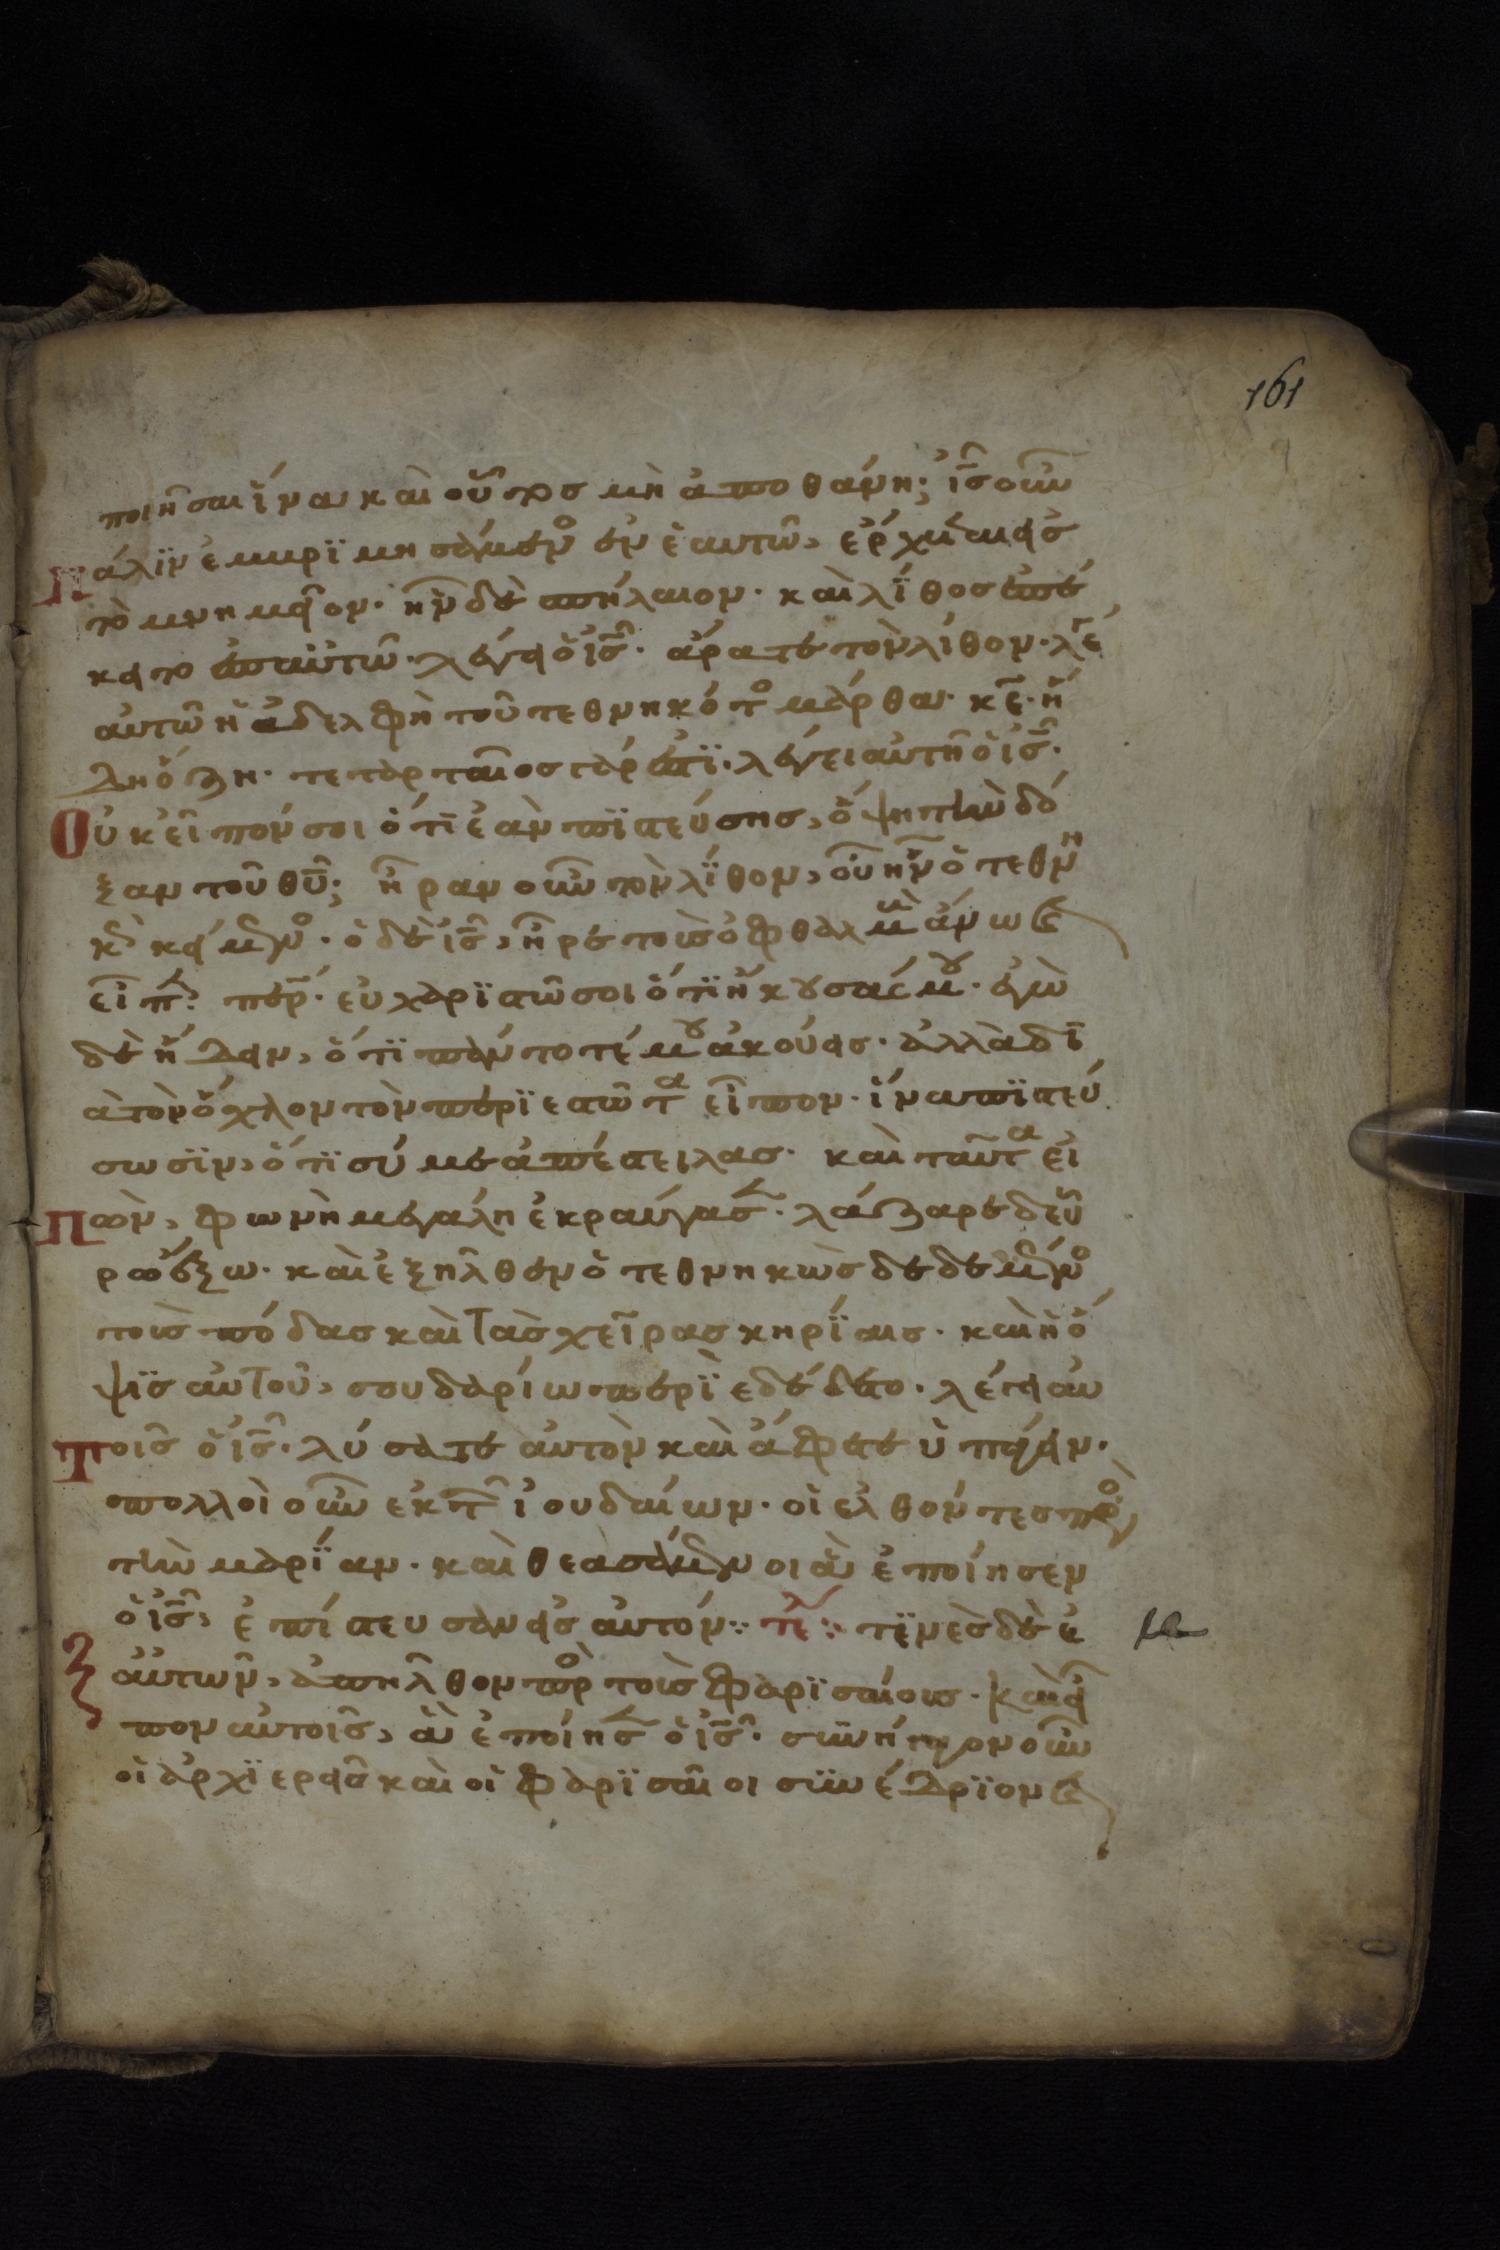 161
ποιῆσαι ἵνα καὶ οὗτος μὴ ἀποθάνη; ἰς οὖν
πάλϊν ἐμμρϊμησάμενος ἐν ἑαυτῶ, ἔρχεται εἰς
τὸ μνημεῖον· ἦν δὲ σπήλαιον· καὶ λίθος ἐπέ
κειτο ἐπ' αὐτῶ· λέγει ὁ ἰς· ἄρατε τὸν λίθον· λέγει
αὐτῶ ἡ ἀδελφὴ τοῦ τεθνηκότος μάρθα· κε· ἤ
δη ὄζη· τεταρταῖος γάρ ἐστϊ· λέγει αὐτῆ ὁ ἰς·
Οὐκ εἶπόν σοι ὅτι ἐὰν πιστεύσης, ὄψη τὴν δό
ξαν τοῦ θυ; ἦραν οὖν τὸν λίθον, οὗ ἦν ὁ τεθνη
κὼς κείμενος· ὁ δὲ ἰς, ἦρε τοὺς ὀφθαλμοὺς ἄνω καὶ
εἶπε· περ· εὐχαριστῶ σοι ὅτϊ ἤκουσάς μου· ἐγὼ
δὲ ἤδειν, ὅτϊ πάντοτέ μου ἀκούεις· ἀλλὰ δι
ὰ τὸν ὄχλον τὸν περιεστῶτα εἶπον· ἵνα πιστεύ
σωσϊν, ὅτϊ σύ με ἀπέστειλας· καὶ ταῦτα εἰ
πὼν, φωνὴ μεγάλη ἐκραύγασε· λάζαρε δεῦ
ρο ἔξω· καὶ ἐξῆλθεν ὁ τεθνηκὼς δεδεμένος
τοὺς πόδας καὶ τὰς χεῖρας κηρίαις· καὶ ἡ ὄ
ψϊς αὐτοῦ, σουδαρίω περιεδέδετο· λέγει αὐ
τοῖς ὁ ἰς· λύσατε αὐτὸν καὶ ἄφετε ὑπάγειν·
πολλοὶ οὖν ἐκ τῶν ἰουδαίων· οἱ ἐλθόντες πρὸς
τὴν μαρίαν· καὶ θεασάμενοι ἃ ἐποίησεν
ὁ ἰς, ἐπίστευσαν εἰς αὐτόν: τέλ: τϊνὲς δὲ ἐ
ξ αὐτῶν, ἀπῆλθον πρὸς τοὺς φαρϊσαίους· καὶ εἶ
πον αὐτοῖς, ἃ ἐποίησε ὁ ἰς· συνήγαγον οὖν
οἱ ἀρχϊερεῖς καὶ οἱ φαρϊσαῖοι συνέδρϊον καὶ